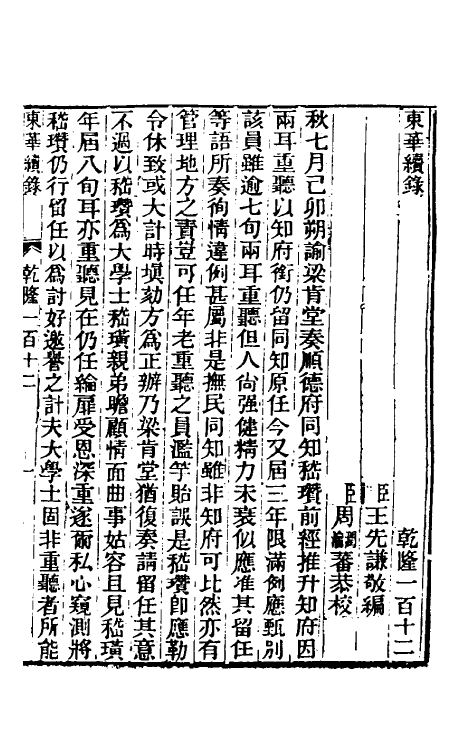 東華續錄
乾隆一百十二
臣王先謙敬編
臣周潤蕃恭校
秋七月己卯朔諭梁肯堂奏順德府同知嵇瓚前經推升知府因
兩耳重聽以知府銜仍留同知原任今又屆三年限滿例應甄別
該員雖逾七旬兩耳重聽但人尚强健精力未衰似應准其留任
等語所奏徇情違例甚屬非是撫民同知雖非知府可比然亦有
管理地方之責豈可任年老重聽之員濫竽貽誤是嵇瓚卽應勒
令休致或大計時塡劾方爲正辦乃梁肯堂猶復奏請留任其意
不過以嵇瓚爲大學士嵇璜親弟瞻顧情面曲事姑容且見嵇璜
年屆八旬耳亦重聽見在仍任綸扉受恩深重遂爾私心窺測將
嵇瓚仍行留任以爲討好邀譽之計夫大學士固非重聽者所能
東華續錄
乾隆一百十二
一